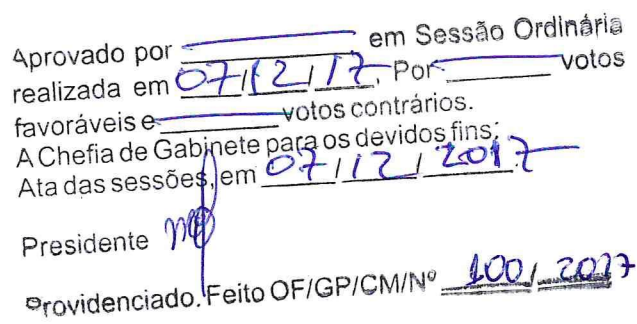 Aprovado por ____________ em Sessão Ordinária
realizada em 07/12/17. Por ________ votos
favoráveis e ________ votos contrários.
A Chefia de Gabinete para os devidos fins;
Ata das sessões, em 07/12/2017.
Presidente
Providenciado. Feito OF/GP/CM/Nº 100/2017